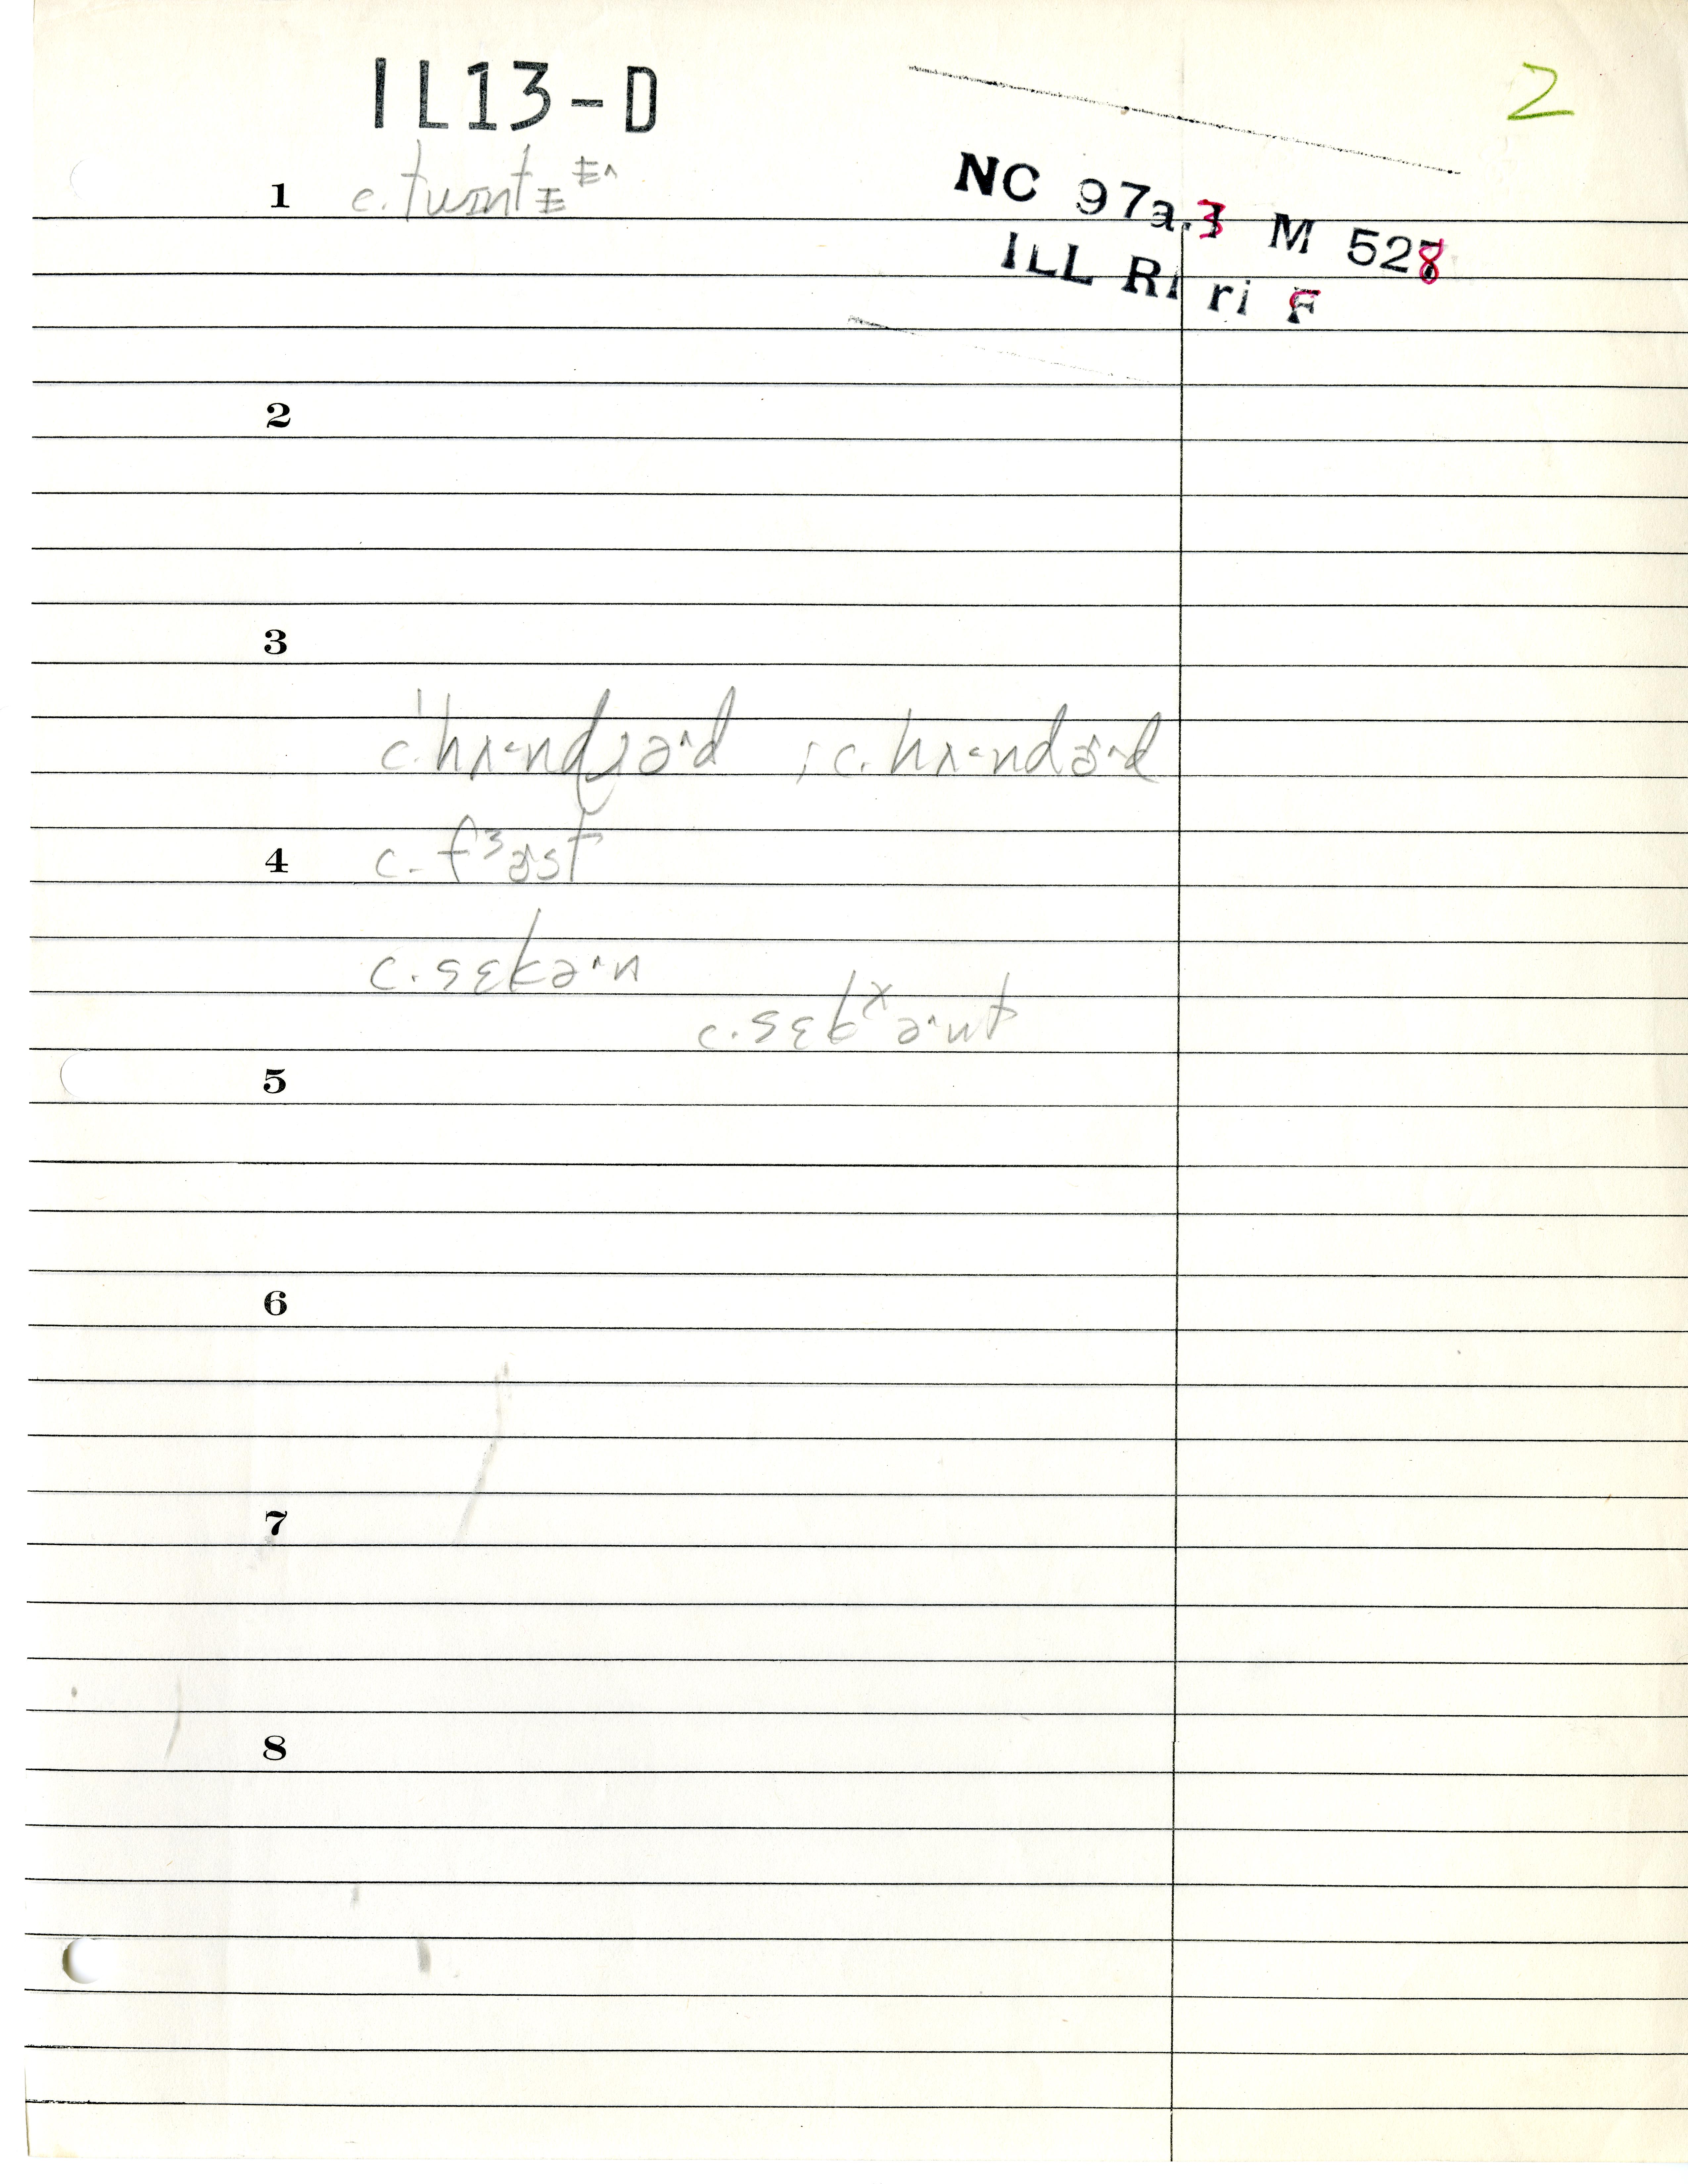 IL13-D
2
NC 97a.3 M 528
ILL Ri ri F
1 c. twɪntɪ
2
3
c. hʌ˂ndɹə^d ; c. hʌ˂ndɚ^d
4 c. fɜɚst
c. sɛkə^n
5
6
7
8